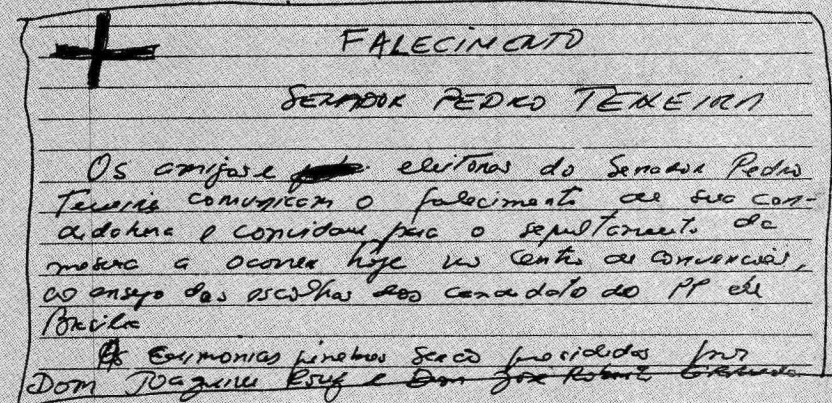 FALECIMENTO
SENADOR PEDRO TEIXEIRA
Os amigos e eleitores do Senador Pedro
Teixeira comunicam o falecimento de sua can-
didatura e convidam para o sepultamento da
mesma a ocorrer hoje no Centro de Convenções,
ao ensejo das escolhas dos candidato do PP de
Brasília
As cerimonias funebres serão presididas por
Dom Joaquim Roriz e Dom José Roberto